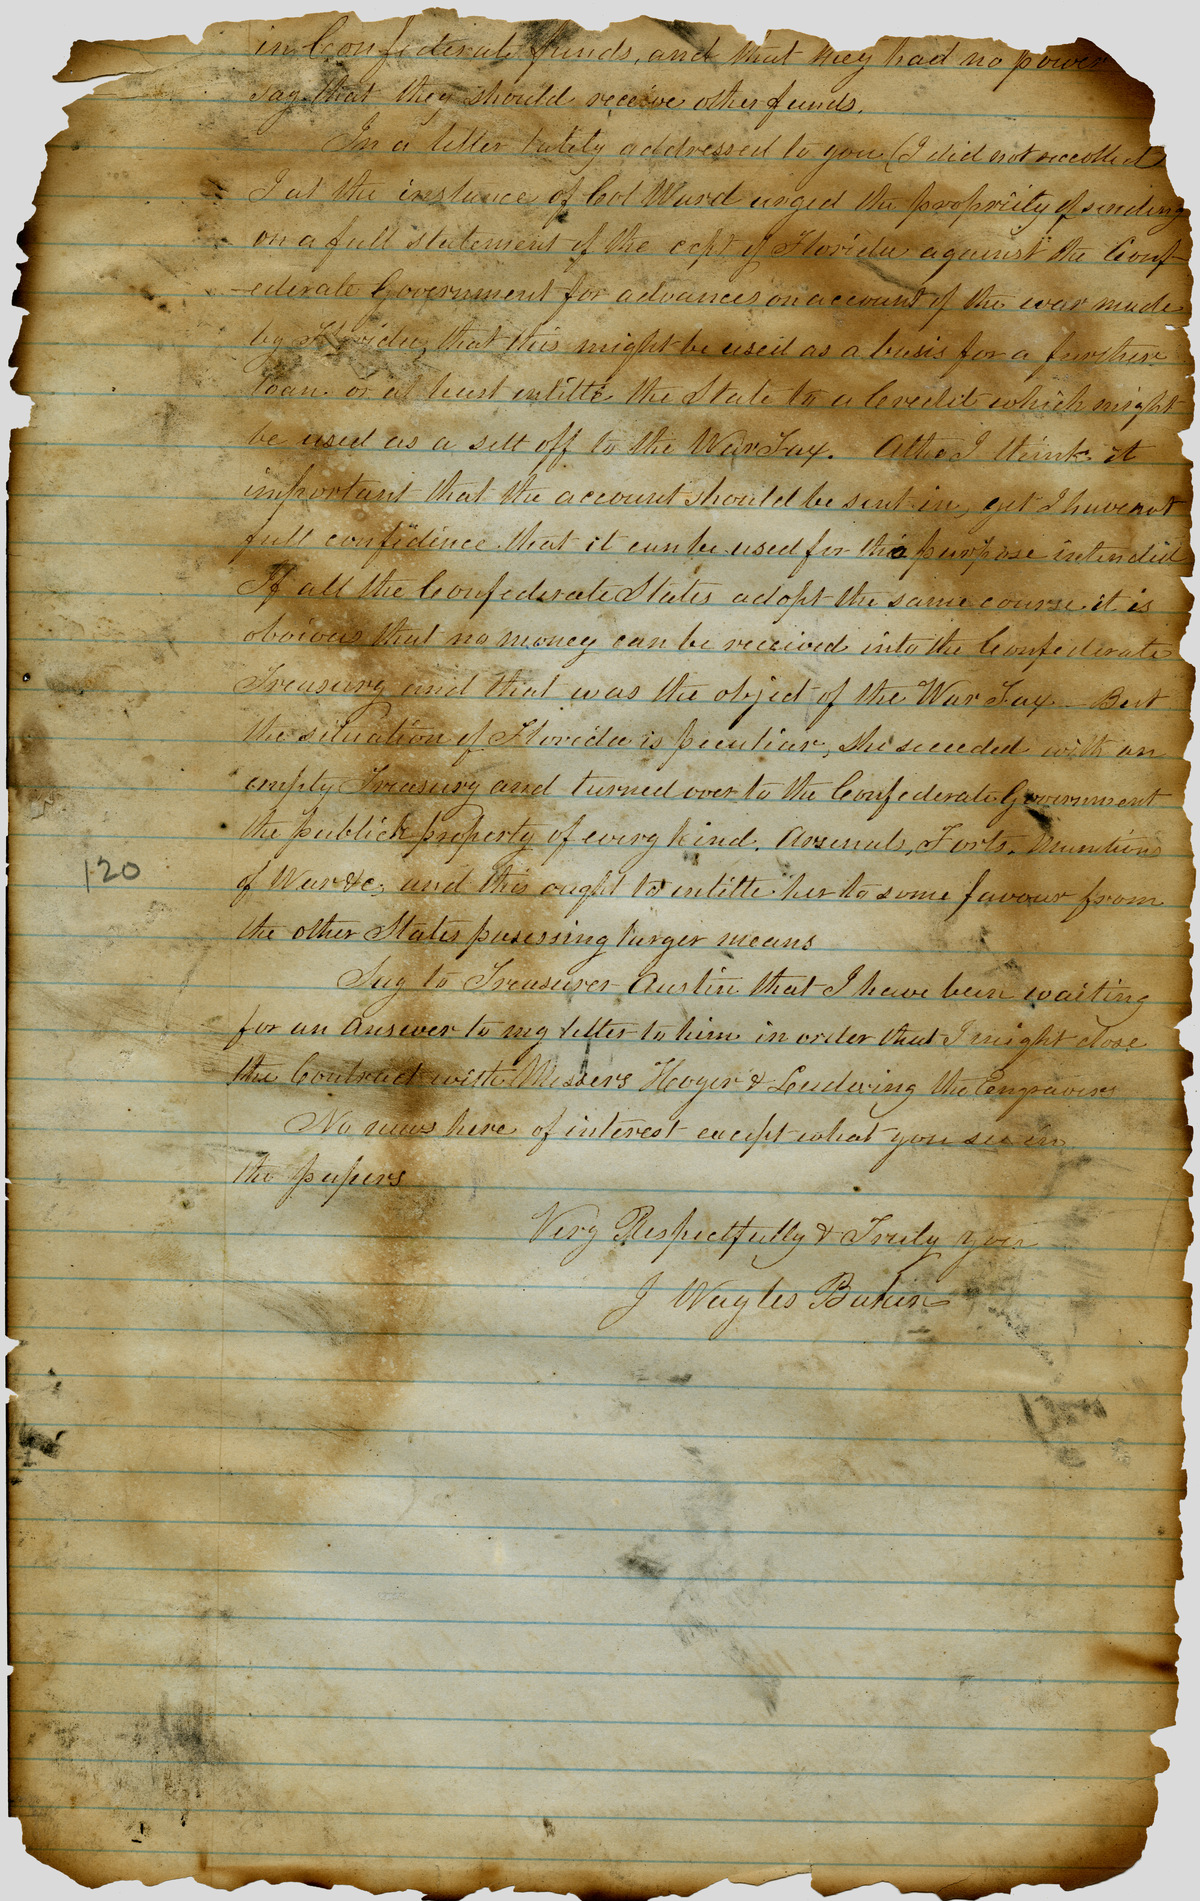 in Confederate funds, and that they had no power
say that they should receive other funds.
In a letter lately addressed to you (I did not reccollect
I at the instance of Col Ward urged the propriety of sending
on a full statement of the of Florida against the Conf-
ederate Government for advances on account of the war made
by Florida, that this might be used as a basis for a further
loan or at least entitle the State to a Credit which might
be used as a sett off to the War Tax. Altho I think it
important that the account should be sent in, yet I have not
full confidence that it can be used for the purpose intended
If all the Confederate States adopt the same course it is
obvious that no money can be received into the Confederate
Treasury and that was the object of the War Tax - But
the situation of Florida is peculiar, she seceeded with an
empty Treasury and turned over to the Confederate Government
the publick property of every kind, Arsenals, Forts, Munitions
of War &c, and this ought to entitle her to some favour from
the other States posessing larger means
120
Say to Treasurer Austin that I have been waiting
for an answer to my letter to him in order that I might close
the Contract with Messers Hoyer & Ludwing the Engravers
No news here of interest except what you see in
the papers
Very Respectfully & Truly Your
J Wayles Baker